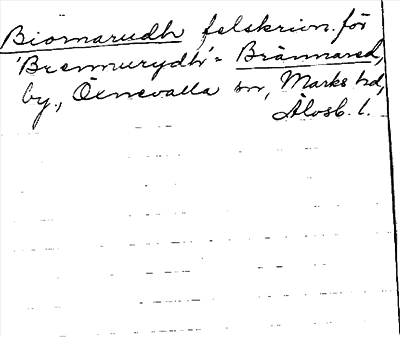 Biomarudh felskrivn. för
'Bremmurydh' = Brännared,
by, Öxnevalla sn, Marks hd,
Älvsb. l.